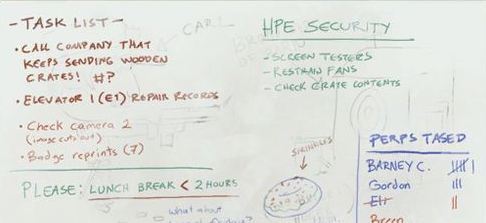 - TASK LIST -
• CALL COMPANY THAT
KEEPS SENDING WOODEN
CRATES! #?
• ELEVATOR 1 (E1) REPAIR RECORDS
• Check camera 2
(image cuts out)
• Badge reprints (7)
PLEASE: LUNCH BREAK < 2 HOURS
what about
CARL
HPE SECURITY
- SCREEN TESTERS
- RESTRAIN FANS
- CHECK CRATE CONTENTS
SPRINKLES
PERPS TASED
BARNEY C.
Gordon
Eli
Breen